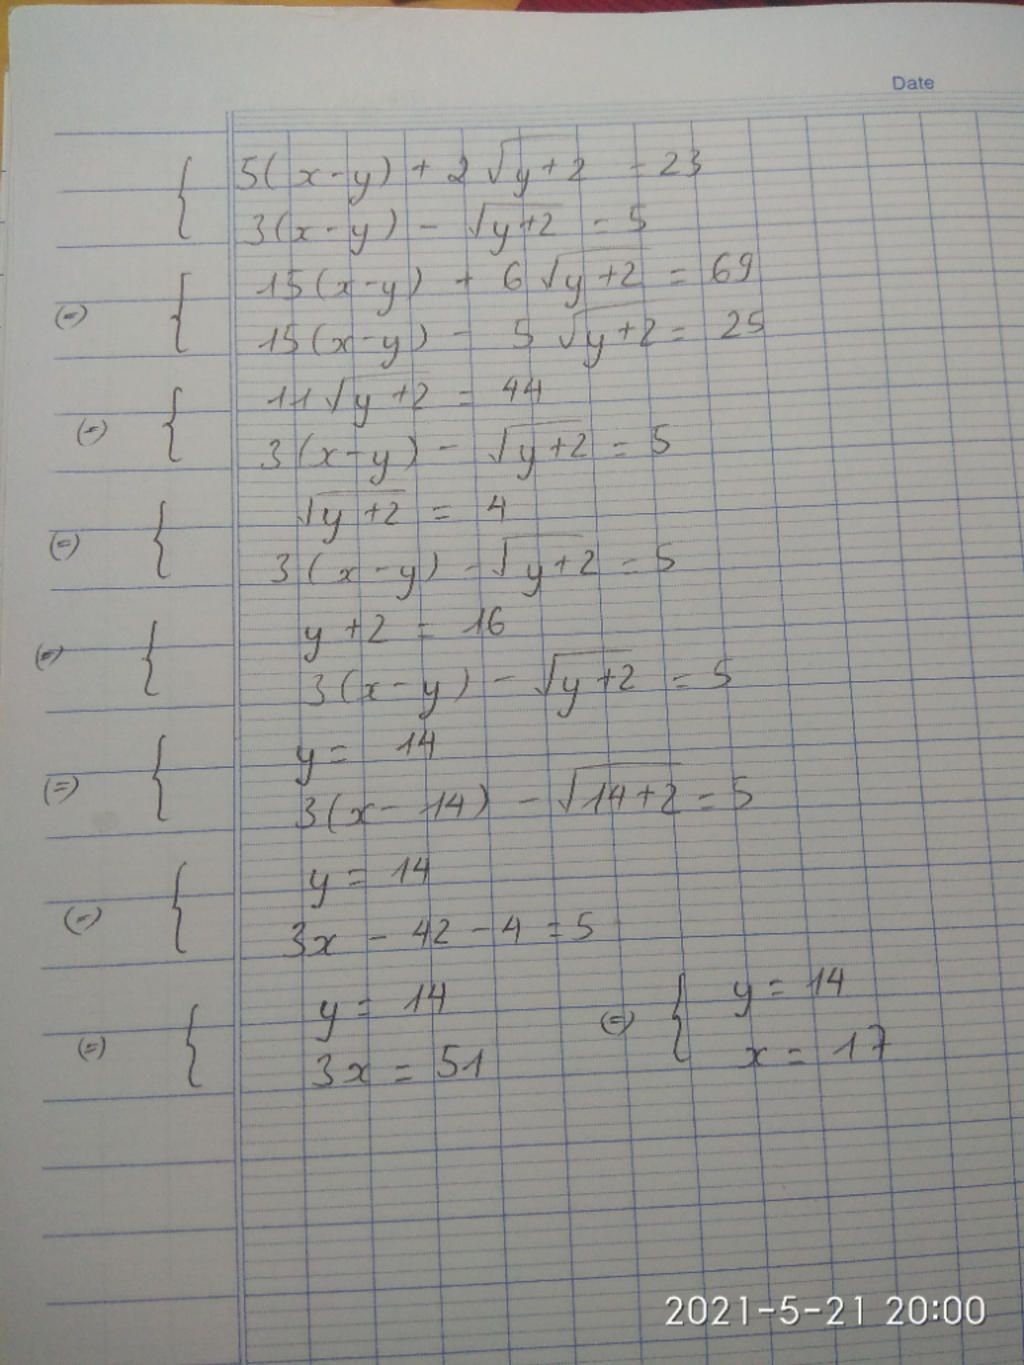 Date
{ 5(x-y) + 2√y+2 = 23
3(x-y) - √y+2 = 5
(=) { 15(x-y) + 6√y+2 = 69
15(x-y) - 5√y+2 = 25
(=) { 11√y+2 = 44
3(x-y) - √y+2 = 5
(=) { √y+2 = 4
3(x-y) - √y+2 = 5
(=) { y+2 = 16
3(x-y) - √y+2 = 5
(=) { y = 14
3(x-14) - √14+2 = 5
(=) { y = 14
3x - 42 - 4 = 5
(=) { y = 14 (=) { y = 14
3x = 51 x = 17
2021-5-21 20:00